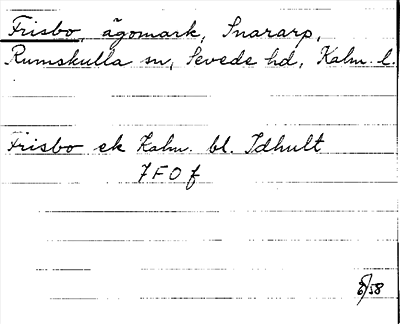 Frisbo, ägomark, Snararp,
Rumskulla sn, Sevede hd, Kalm. l.
Frisbo ek Kalm. bl. Idhult
7 F O f